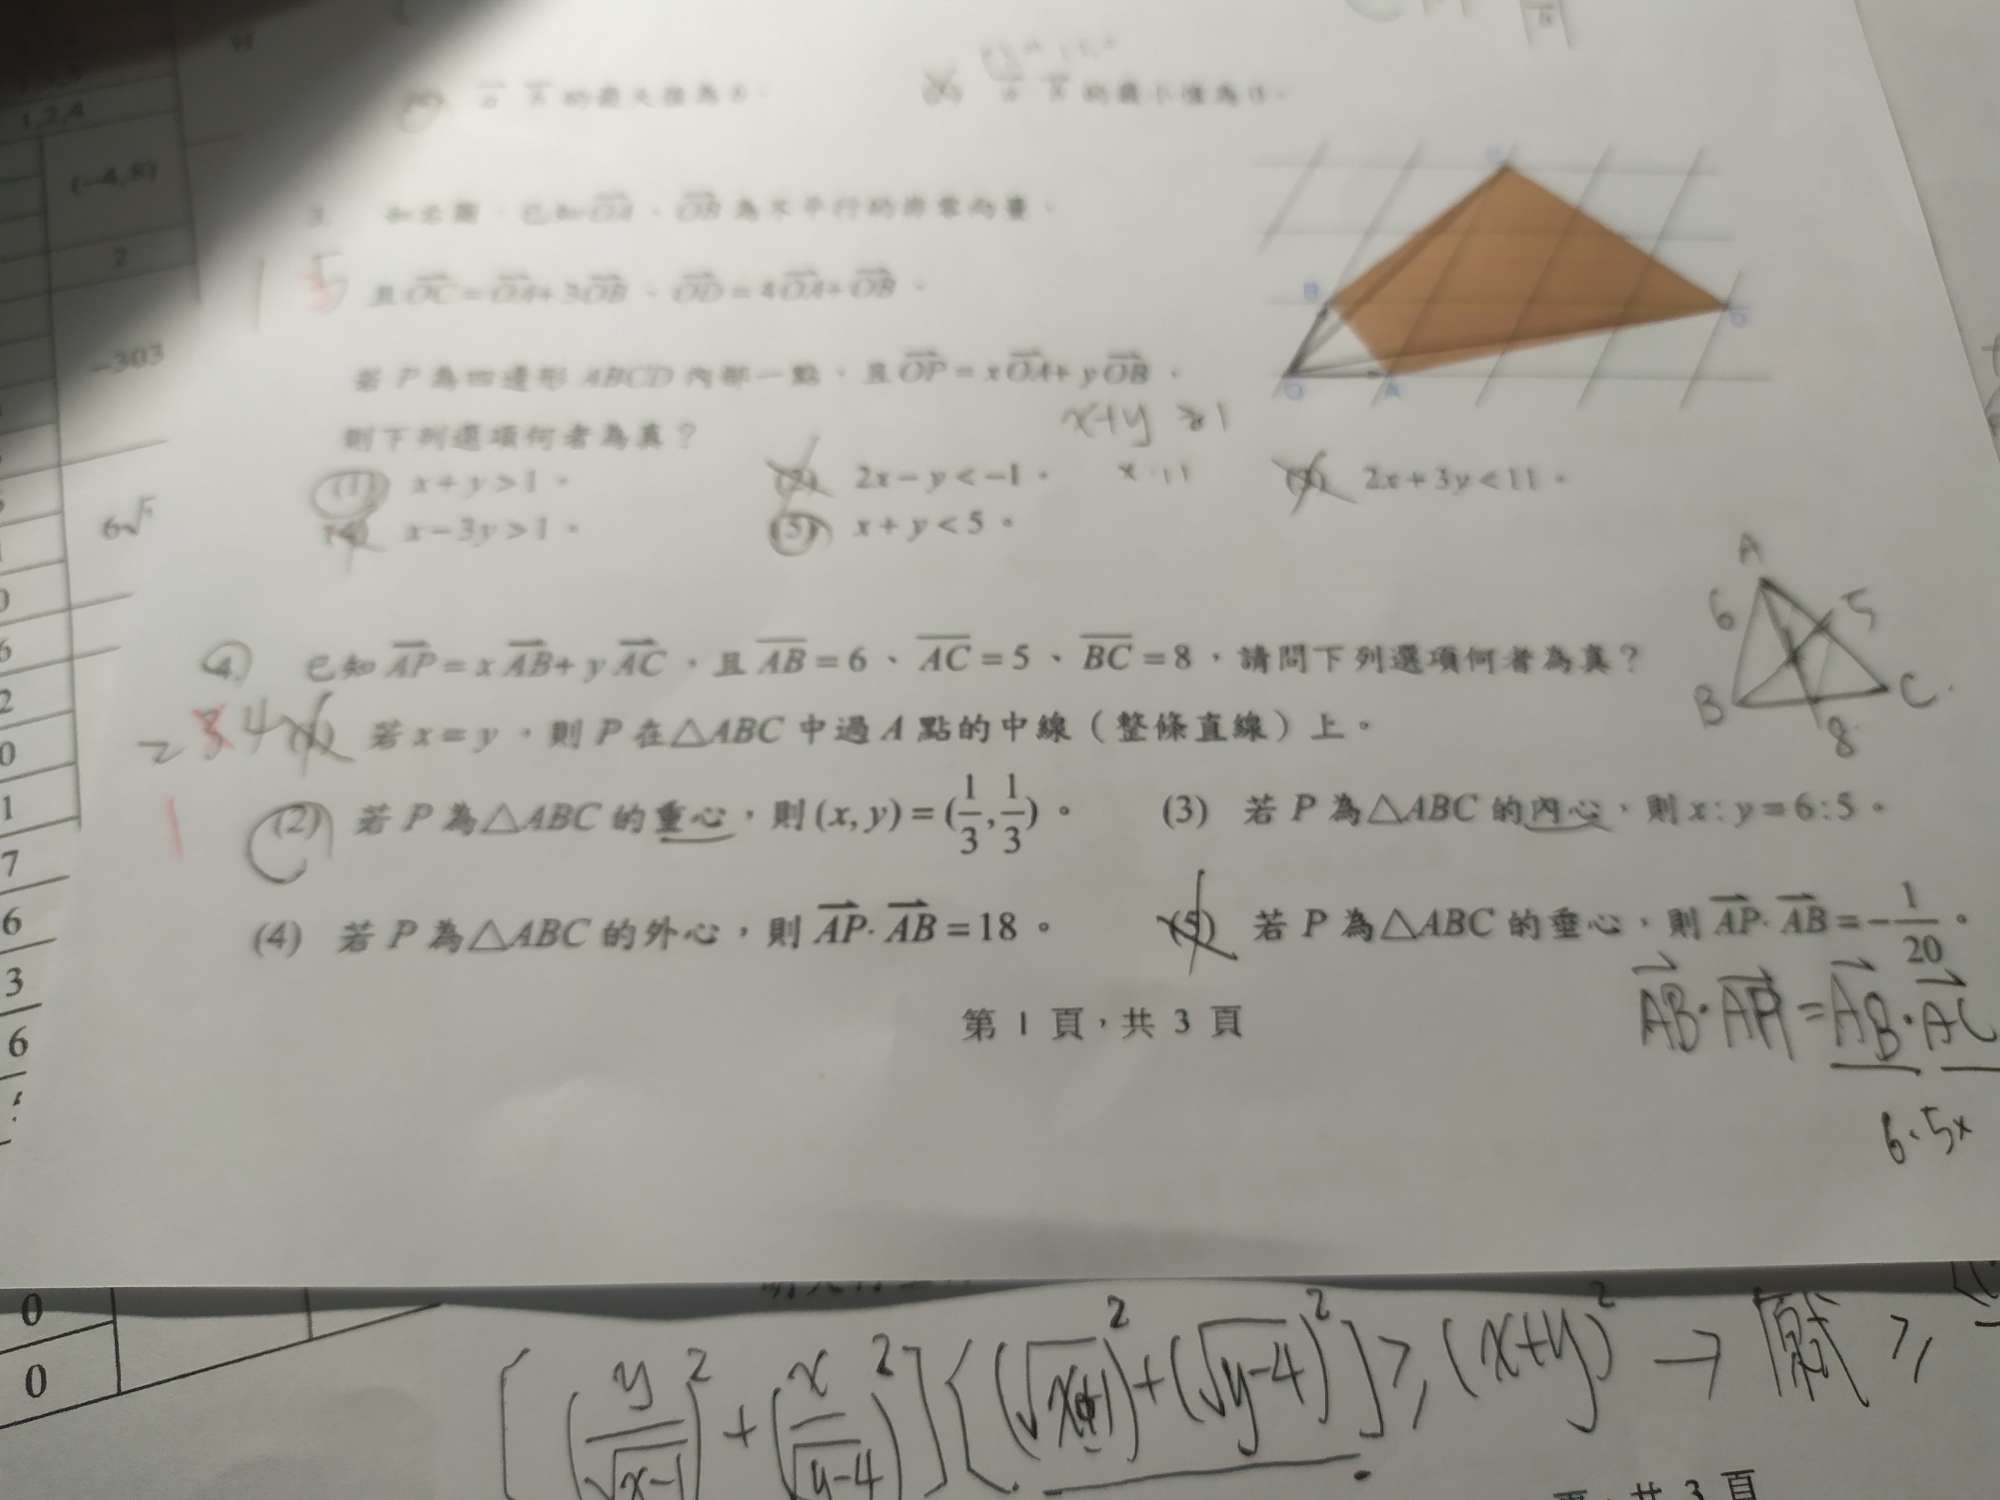 1,2,4
(-4,8)
2
-303
6√
3. 如右圖，已知OA、OB為不平行的非零向量，
1 5
且OC=OA+3OB、OD=4OA+OB。
若 P 為四邊形 ABCD 內部一點，且OP=xOA+yOB，
x+y >1
則下列選項何者為真？
(1) x+y>1。 (2) 2x-y<-1。 (3) 2x+3y<11。
(4) x-3y>1。 (5) x+y<5。
B
O A D
A
6 5
B C
8
4. 已知AP=xAB+yAC，且AB=6、AC=5、BC=8，請問下列選項何者為真？
2 3 4 (1) 若x=y，則P在△ABC中過A點的中線（整條直線）上。
1
(2) 若P為△ABC的重心，則(x,y)=(1/3,1/3)。 (3) 若P為△ABC的內心，則x:y=6:5。
(4) 若P為△ABC的外心，則AP·AB=18。 (5) 若P為△ABC的垂心，則AP·AB=-1/20。
AB·AP=AB·AC
6·5x
第 1 頁，共 3 頁
0
6
2
0
1
7
6
3
6
0
0
[(y/√x-1)²+(x/√y-4)²][(√x-1)²+(√y-4)²]≥(x+y)²→原式≥
共 3 頁